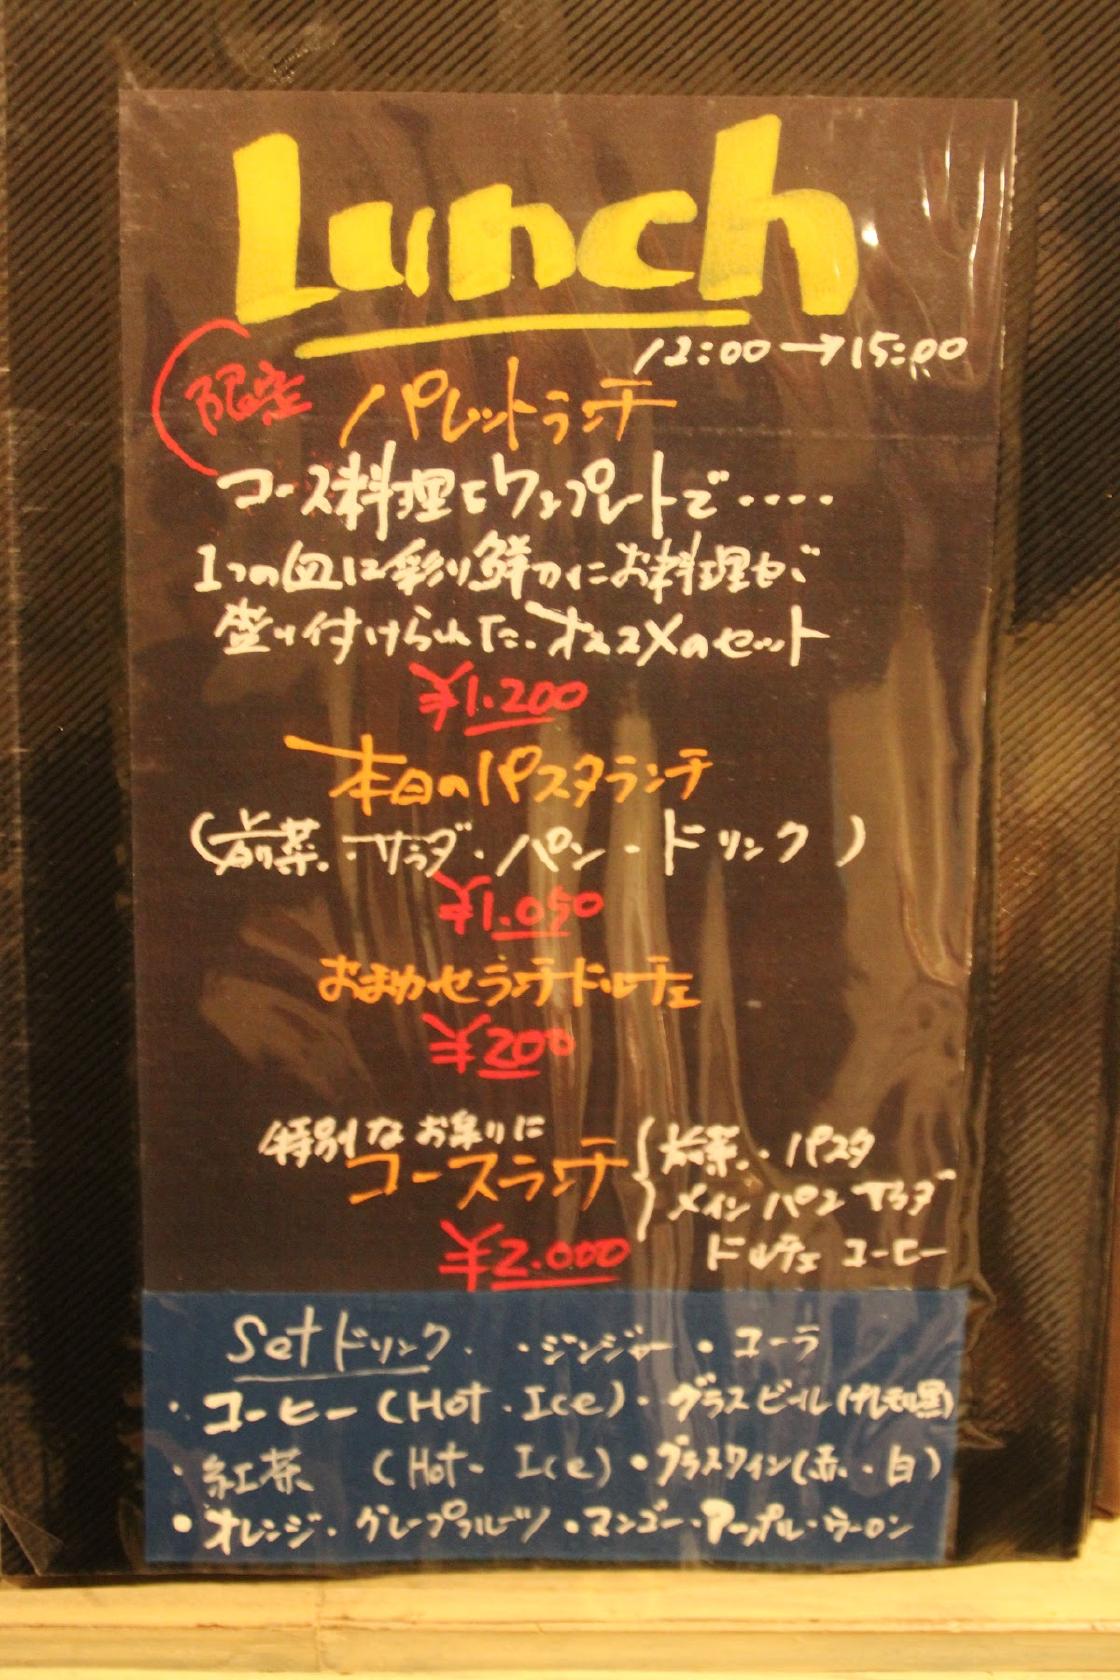 Lunch
12:00→15:00
限定 パレットランチ
コース料理をワンプレートで‥‥
1つの皿に彩り鮮かにお料理が
盛り付けられた。オススメのセット
¥1.200
本日のパスタランチ
(前菜・サラダ・パン・ドリンク)
¥1.050
おまかせランチドルチェ
¥200
特別なお集りに
コースランチ
前菜・パスタ
メイン パン サラダ
ドルチェ コーヒー
¥2.000
Setドリンク ・ジンジャー ・コーラ
・コーヒー (Hot・Ice) ・グラスビール
・紅茶 (Hot・Ice) ・グラスワイン(赤・白)
・オレンジ・グレープフルーツ ・マンゴー・アップル・ウーロン